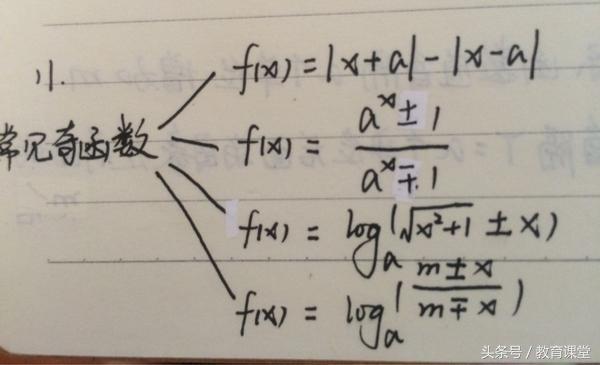 11.
常见奇函数
f(x) = |x+a| - |x-a|
f(x) = \frac{a^x ± 1}{a^x ∓ 1}
f(x) = log_a(\sqrt{x^2+1} ± x)
f(x) = log_a(\frac{m±x}{m∓x})
头条号 / 教育课堂